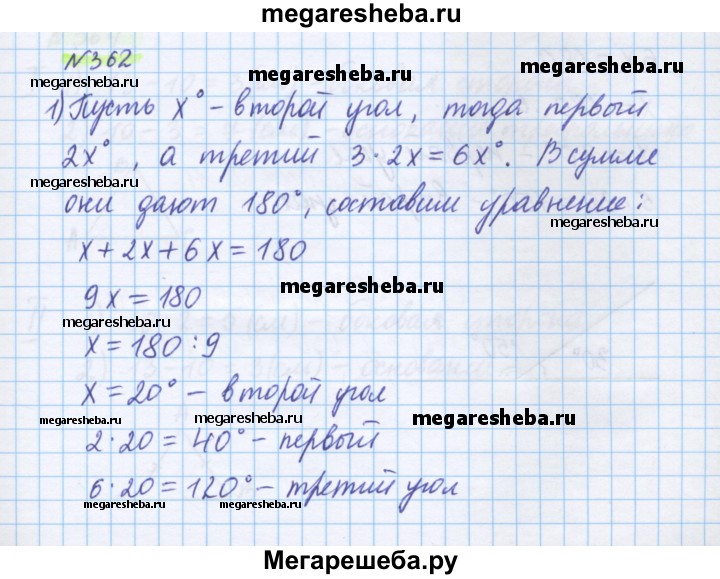 megaresheba.ru
№362
megaresheba.ru
megaresheba.ru
megaresheba.ru
1) Пусть x° - второй угол, тогда первый
2x°, а третий 3·2x = 6x°. В сумме
megaresheba.ru
они дают 180°, составим уравнение:
megaresheba.ru
x + 2x + 6x = 180
megaresheba.ru
9x = 180
megaresheba.ru
megaresheba.ru
x = 180 : 9
x = 20° - второй угол
megaresheba.ru
megaresheba.ru
megaresheba.ru
2·20 = 40° - первый
6·20 = 120° - третий угол
megaresheba.ru
megaresheba.ru
Мегарешеба.ру